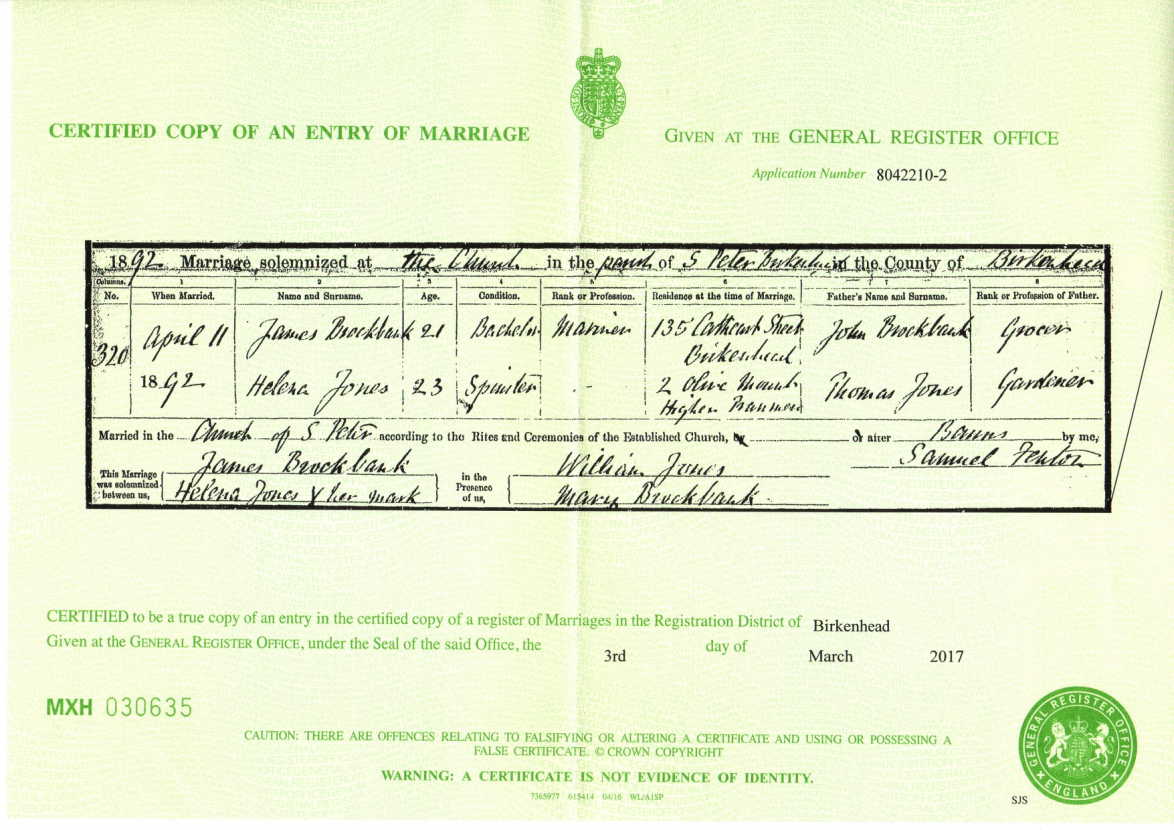 CERTIFIED COPY OF AN ENTRY OF MARRIAGE
GIVEN AT THE GENERAL REGISTER OFFICE
Application Number 8042210-2
1892 Marriage solemnized at the Church in the parish of S Peter Birkenhead in the County of Birkenhead
Columns. 1 2 3 4 5 6 7 8
No. When Married. Name and Surname. Age. Condition. Rank or Profession. Residence at the time of Marriage. Father's Name and Surname. Rank or Profession of Father.
320 April 11 James Brockbank 21 Bachelor Mariner 135 Cathcart Street Birkenhead John Brockbank Grocer
1892 Helena Jones 23 Spinster - 2 Olive Mount Higher Tranmere Thomas Jones Gardener
Married in the Church of S Peter according to the Rites and Ceremonies of the Established Church, by or after Banns by me,
This Marriage was solemnized between us, James Brockbank in the Presence of us, William Jones Samuel Fenton
Helena Jones X her mark Mary Brockbank
CERTIFIED to be a true copy of an entry in the certified copy of a register of Marriages in the Registration District of Birkenhead
Given at the GENERAL REGISTER OFFICE, under the Seal of the said Office, the 3rd day of March 2017
MXH 030635
CAUTION: THERE ARE OFFENCES RELATING TO FALSIFYING OR ALTERING A CERTIFICATE AND USING OR POSSESSING A
FALSE CERTIFICATE. © CROWN COPYRIGHT
WARNING: A CERTIFICATE IS NOT EVIDENCE OF IDENTITY.
7365977 615414 04/16 WL/A1SP
GENERAL REGISTER OFFICE
ENGLAND
SJS